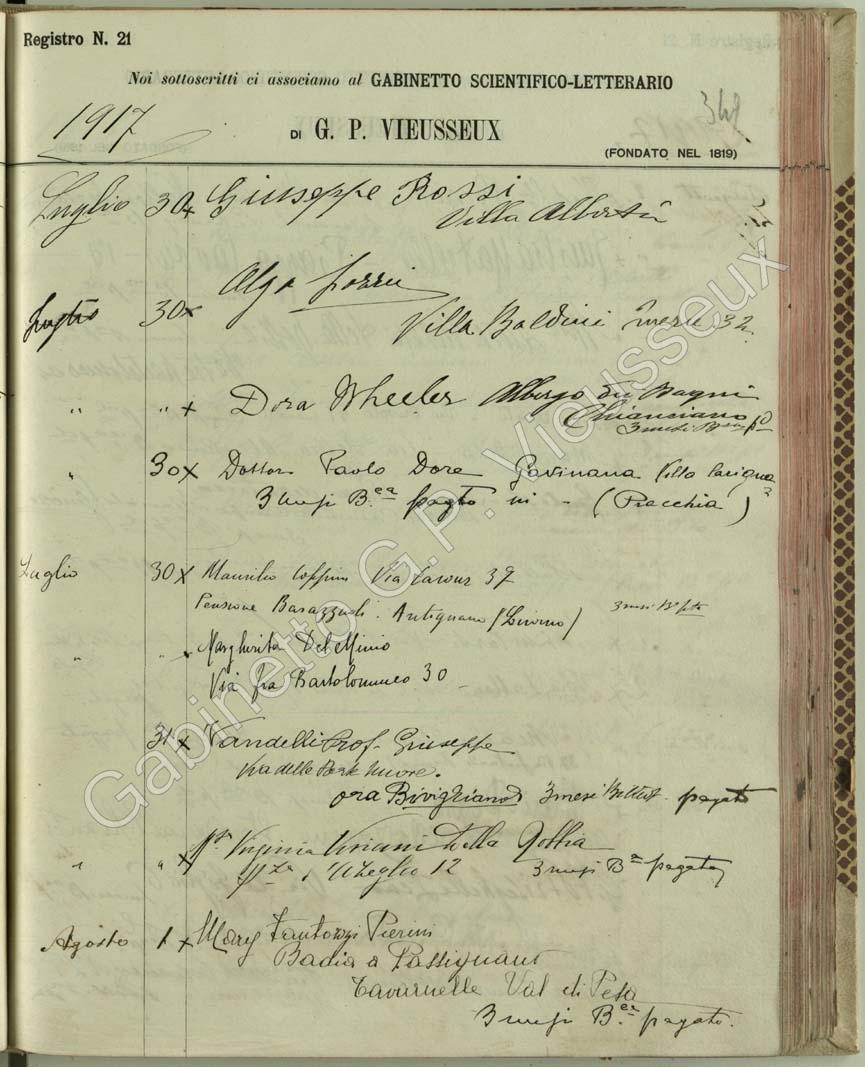 Registro N. 21
Noi sottoscritti ci associamo al GABINETTO SCIENTIFICO-LETTERARIO
1917
DI G. P. VIEUSSEUX
(FONDATO NEL 1819)
Luglio 30 x Giuseppe Rossi
Villa Alberta
30 x Alga
Villa Baldini 32
" " x Dora Wheeler Albergo dei Bagni
Chianciano
3 mesi
" 30 x Dottor Paolo Dore Gavinana Villa
3 mesi B.ca pagto (Pracchia)
Luglio 30 x Maurilio Coppini Via Cavour 37
Pensione Barazzuoli. Antignano (Livorno) 3 mesi
" " x Margherita Del Minio
Via fra Bartolommeo 30
31 x Vandelli Prof. Giuseppe
Via delle
ora Bivigliano 3 mesi pagato
" " x Virginia Viviani della Robbia
P.za d'Azeglio 12 3 mesi B.ca pagato
Agosto 1 x Mary Fantozzi Pierini
Badia a Passignano
Tavarnelle Val di Pesa
3 mesi B.ca pagato.
Gabinetto G.P. Vieusseux